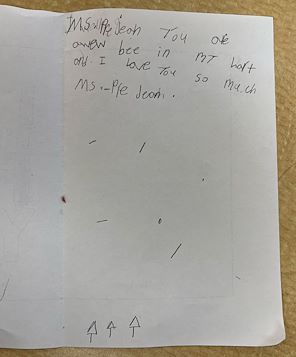 Ms.-Pfe Jeah Tou ore
awew bee in mT hart
and. I Love Tou so much
Ms.-Pfe Jeah.